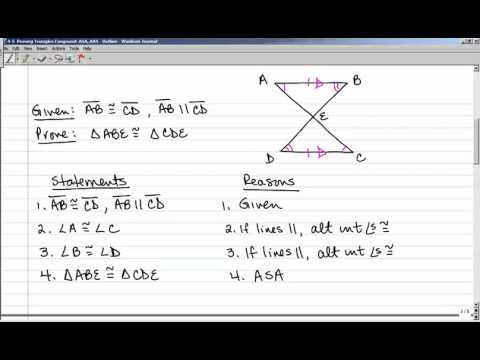 4-5 Proving Triangles Congruent ASA, AAS - Outline - Windows Journal
A B
E
D C
Given: AB ≅ CD , AB || CD
Prove: △ABE ≅ △CDE
Statements
1. AB ≅ CD , AB || CD
2. ∠A ≅ ∠C
3. ∠B ≅ ∠D
4. △ABE ≅ △CDE
Reasons
1. Given
2. If lines ||, alt int ∠s ≅
3. If lines ||, alt int ∠s ≅
4. ASA